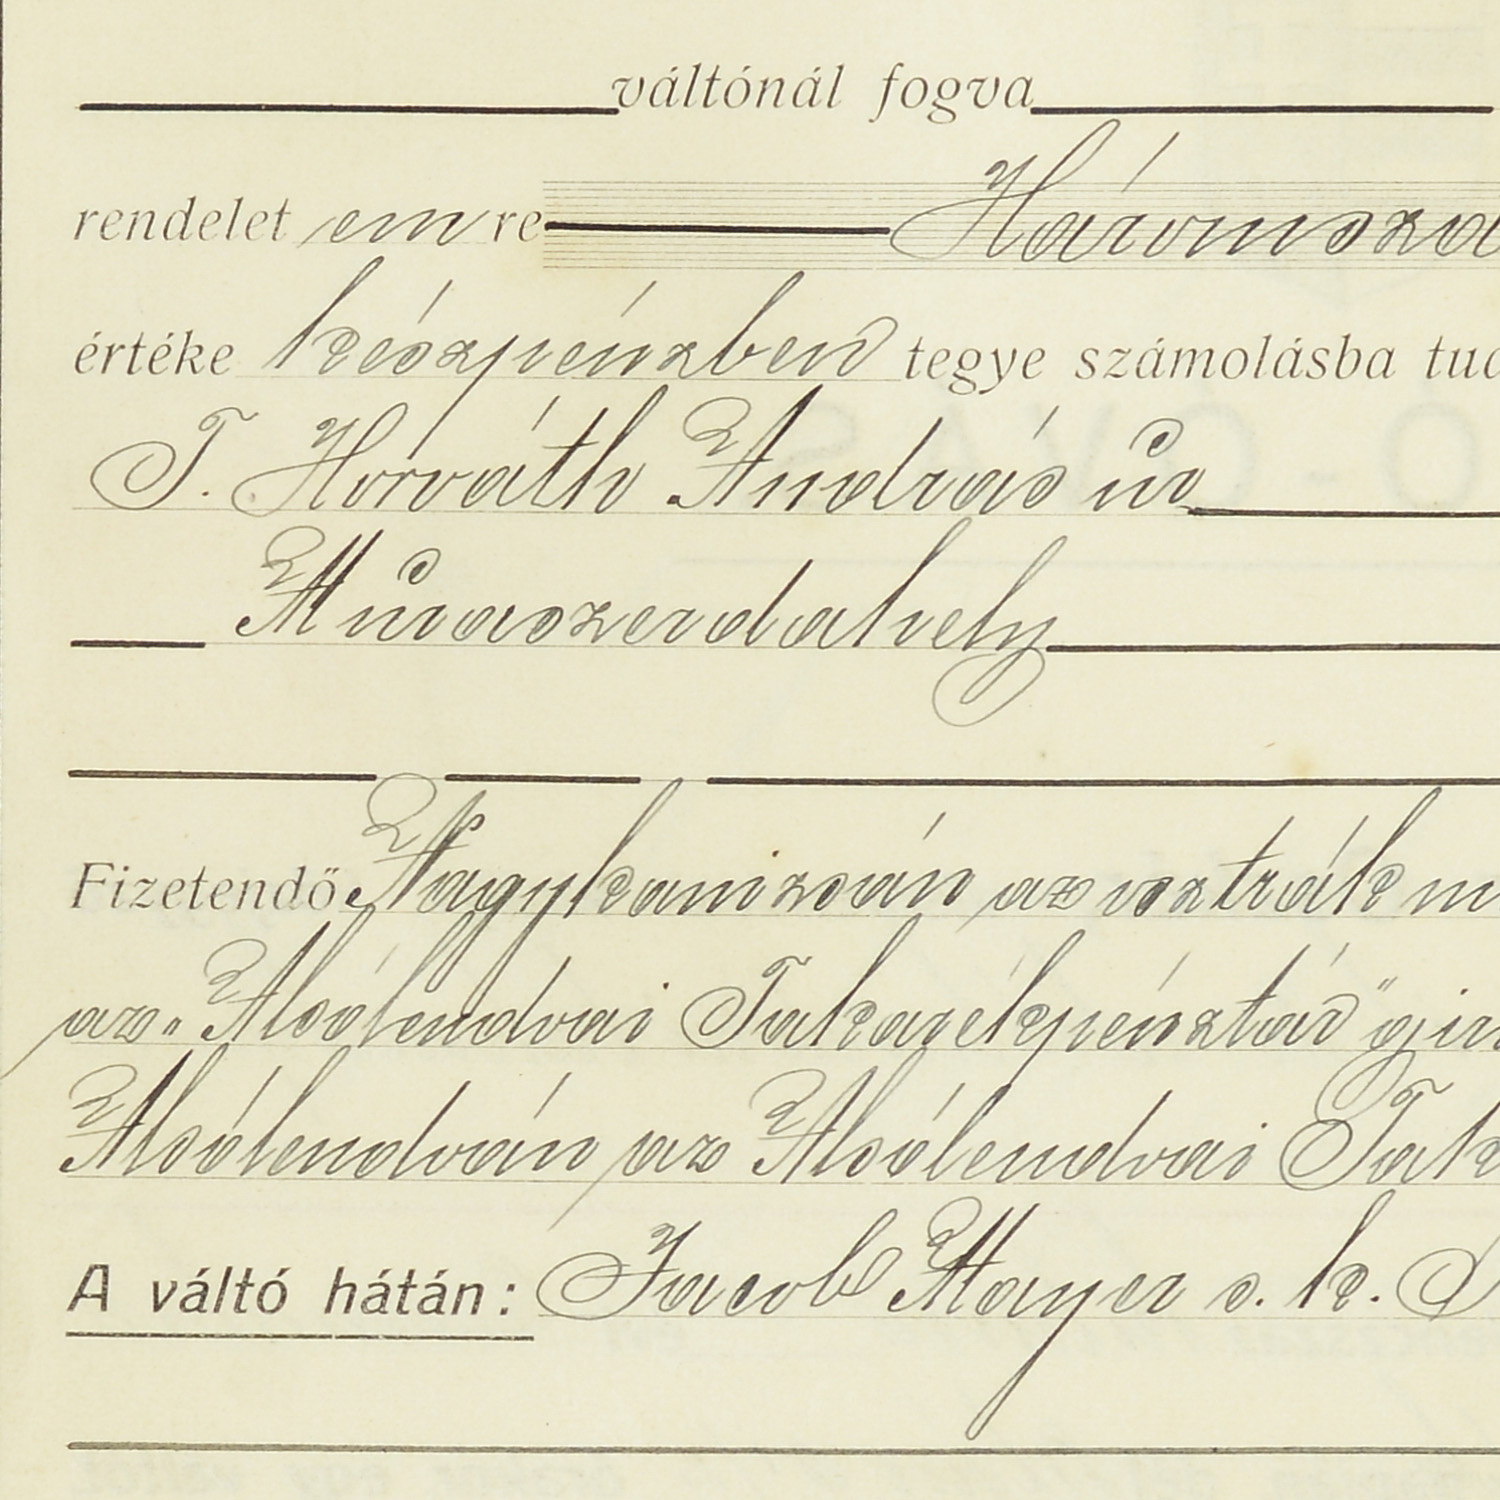 váltónál fogva
rendelet emre Háromszá
értéke készpénzben tegye számolásba
T. Horváth András úr
Muraszerdahely
Fizetendő Nagykanizsán az osztrák m
az „Alsólendvai Takarékpénztár"
Alsólendván az Alsólendvai Tak
A váltó hátán: Jacob Mayer s. k.